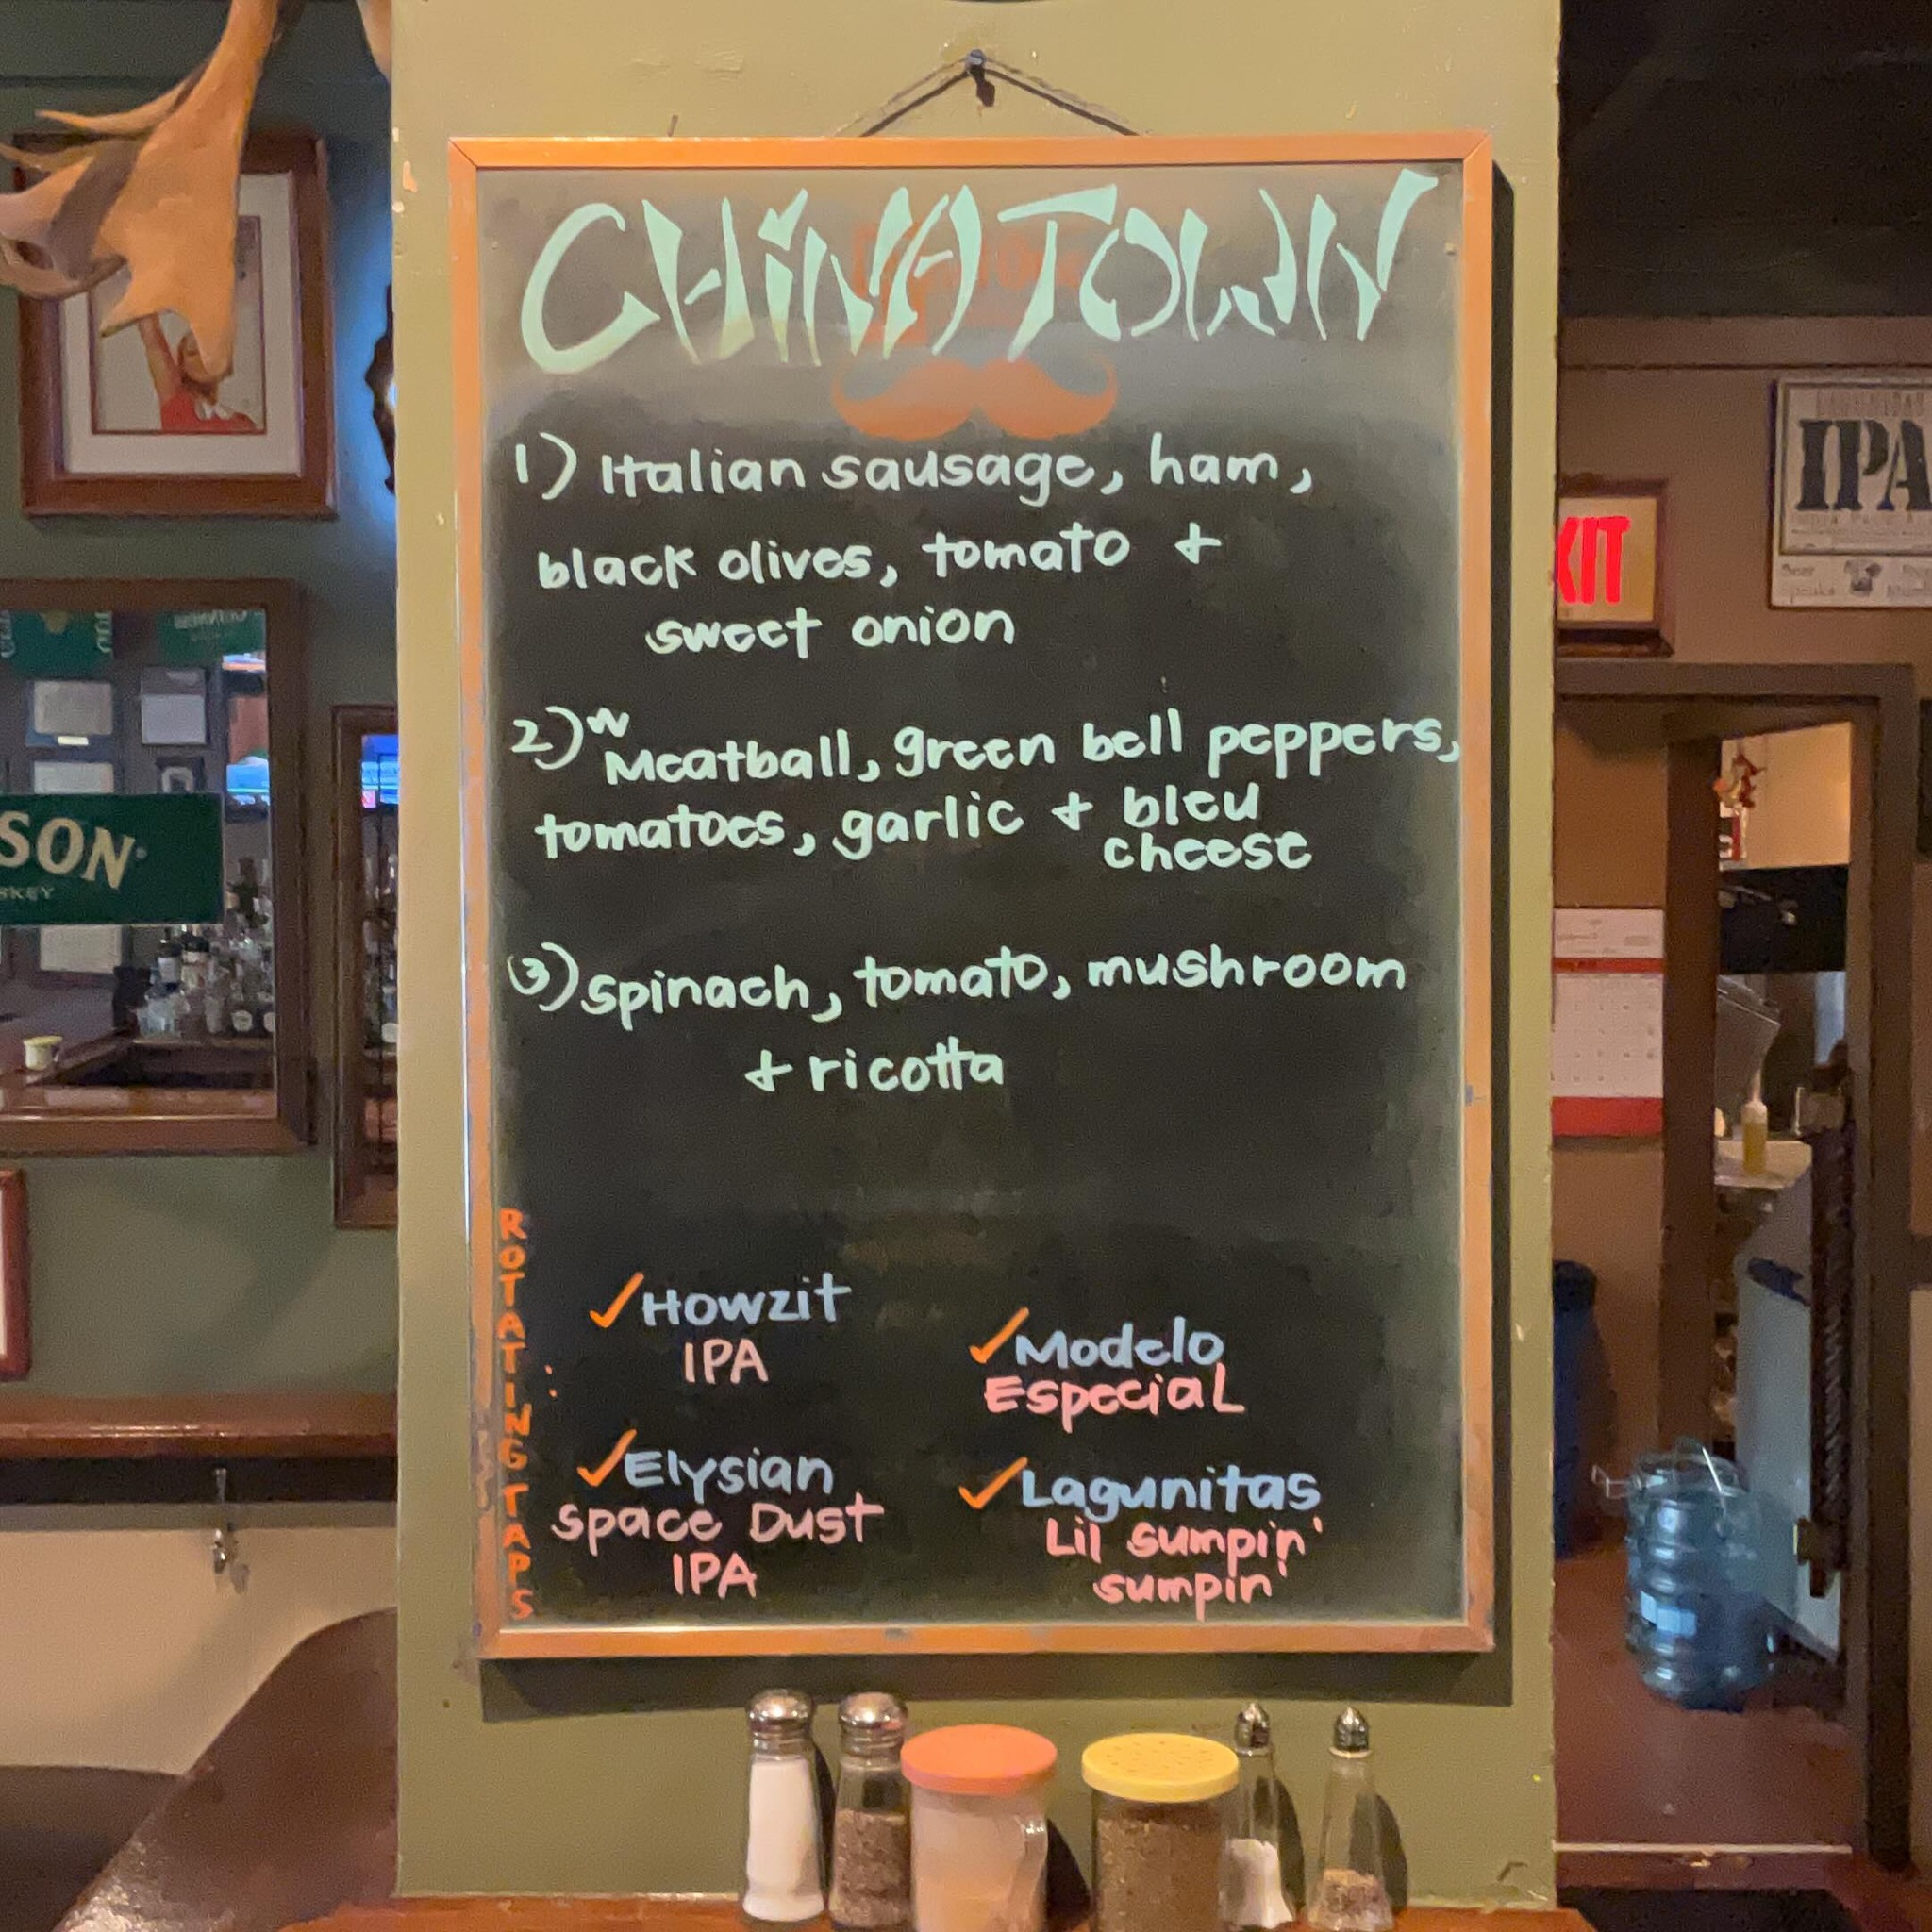 CHINATOWN
1) Italian sausage, ham,
black olives, tomato +
sweet onion
2) w
Meatball, green bell peppers,
tomatoes, garlic + bleu
cheese
3) spinach, tomato, mushroom
+ ricotta
ROTATING TAPS
✓Howzit
IPA
✓Modelo
Especial
✓Elysian
Space Dust
IPA
✓Lagunitas
Lil sumpin'
sumpin'
SON
SKEY
XIT
IPA